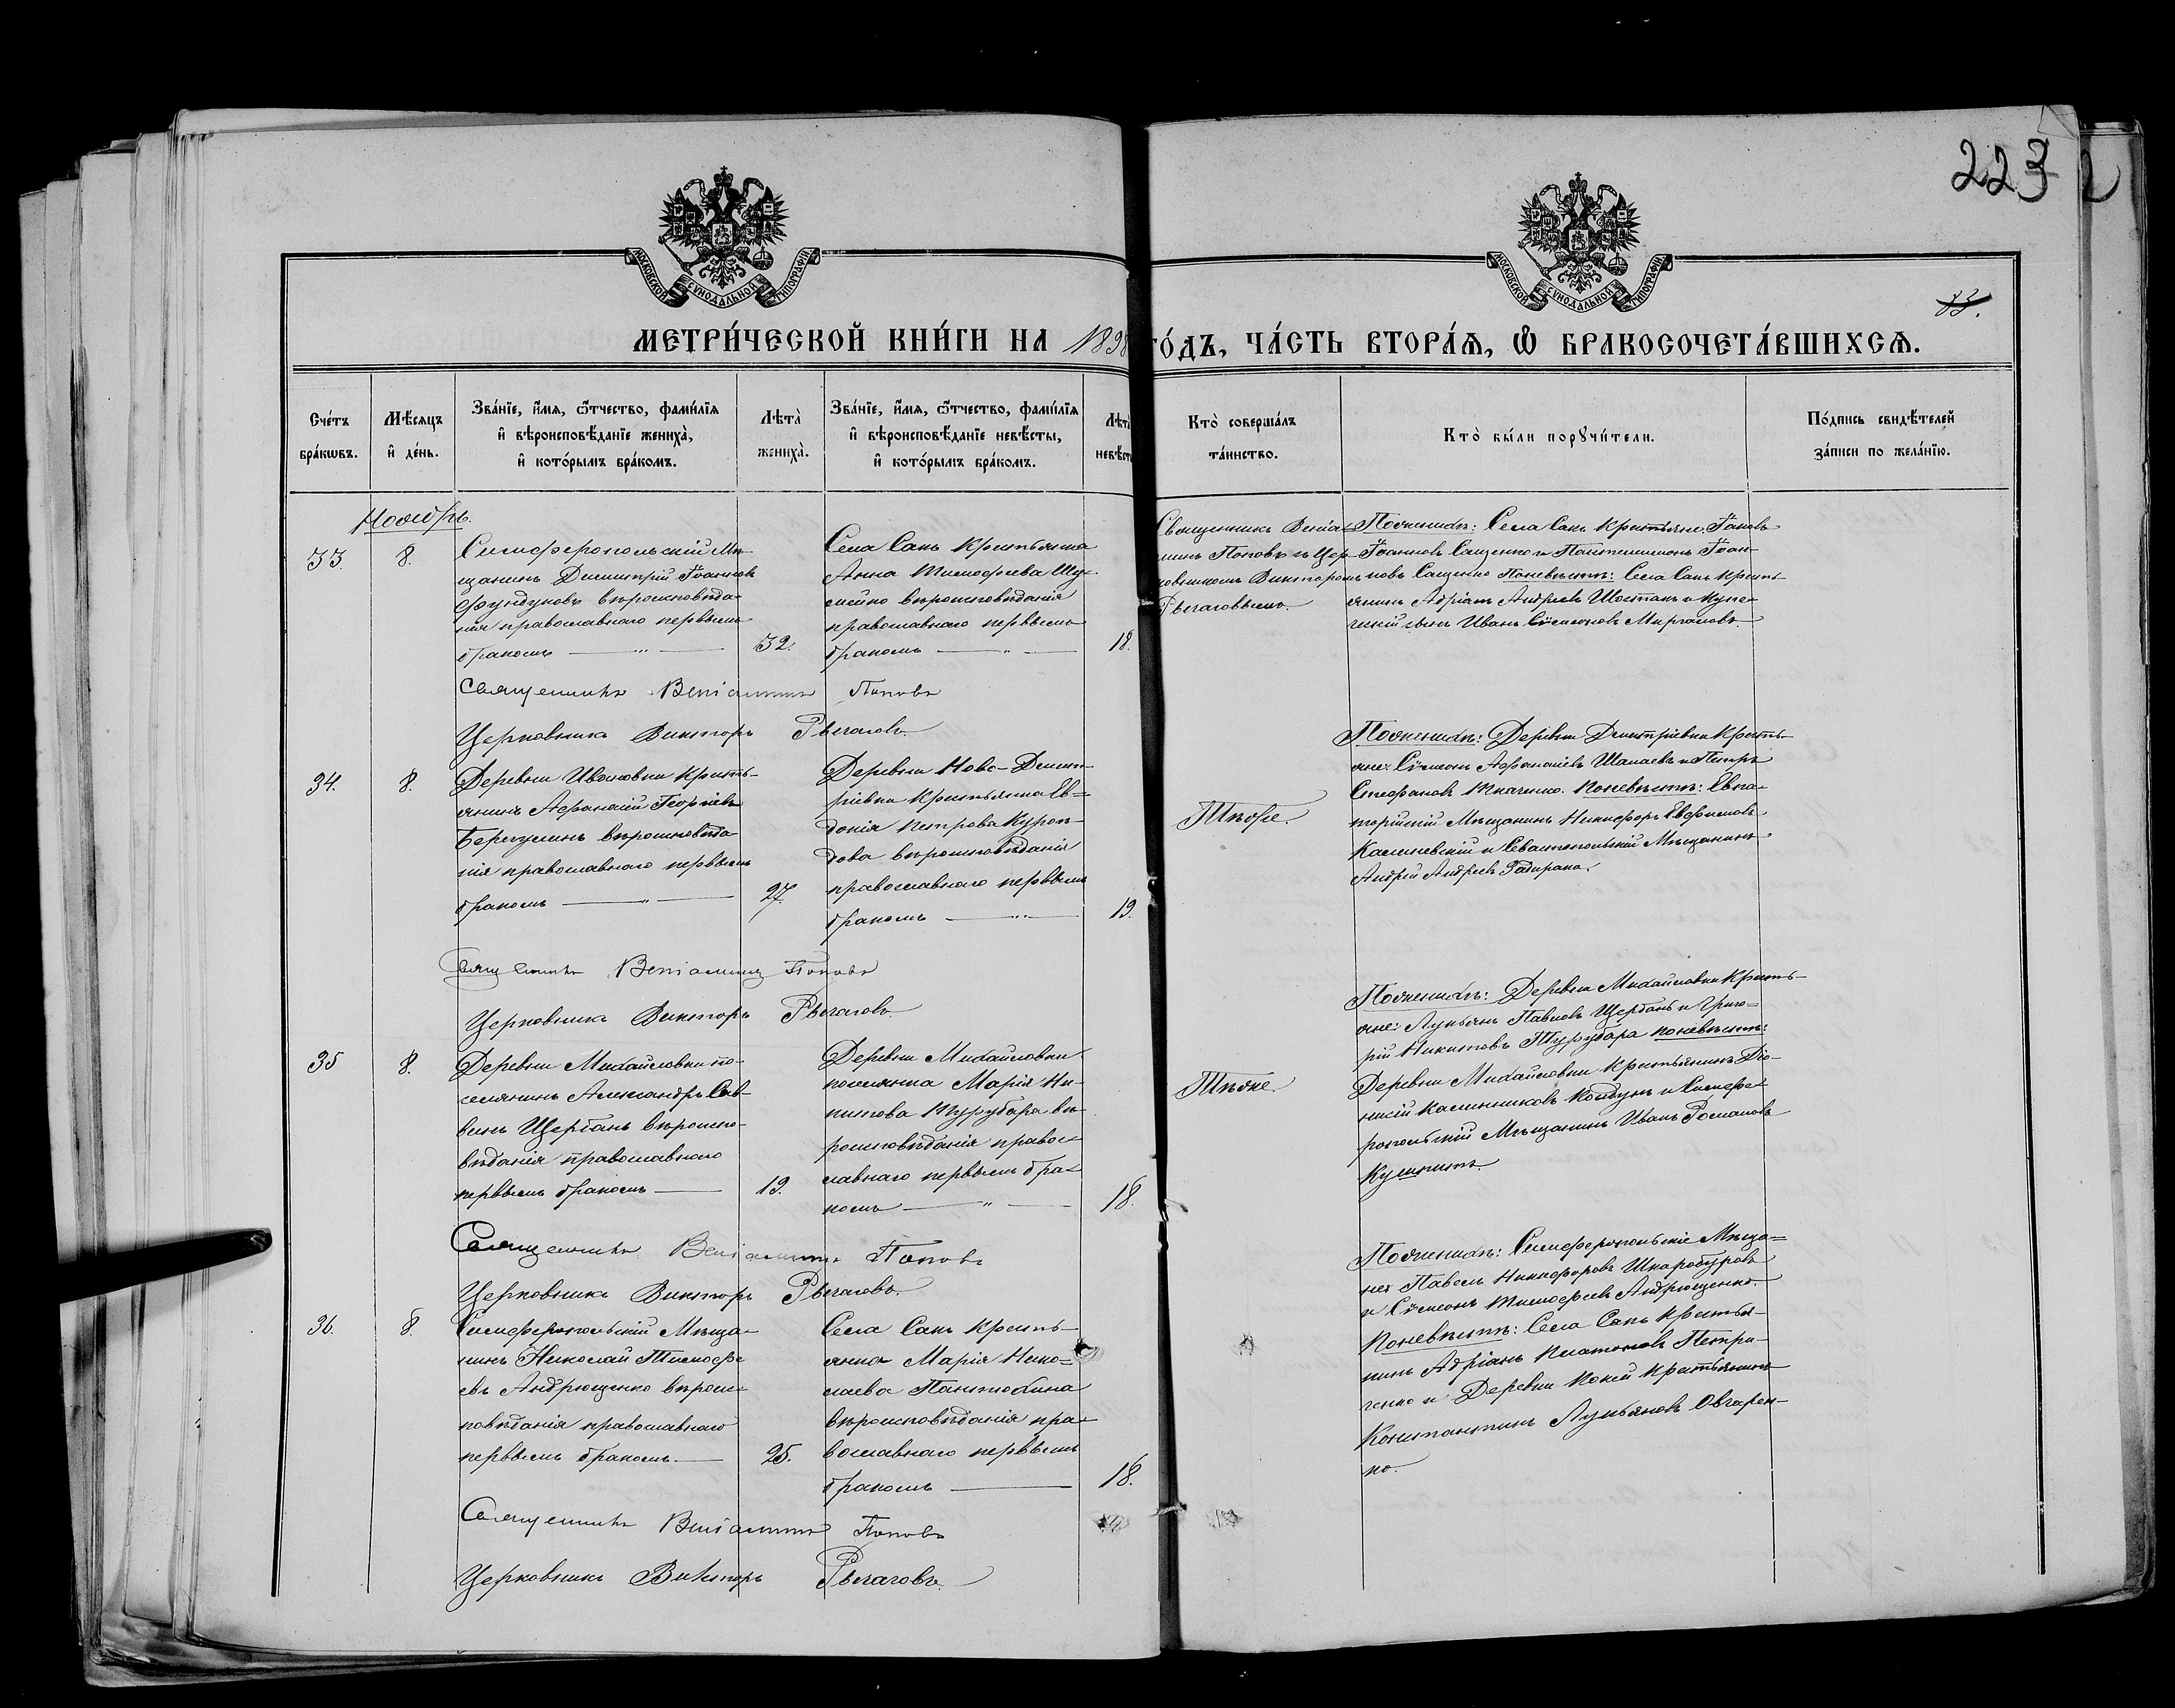 223
МОСКОВСКОЙ СѴНОДАЛЬНОЙ ТИПОГРАФІИ
МОСКОВСКОЙ СѴНОДАЛЬНОЙ ТИПОГРАФІИ
33.
МЕТРИ́ЧЕСКОЙ КНИ́ГИ НА 1898 ГО́ДЪ, ЧА́СТЬ ВТОРА́Ѧ, Ѡ БРАКОСОЧЕТА́ВШИХСѦ.
Сче́тъ бра́кѡвъ.
Мѣ́сяцъ и҆ де́нь.
Зва́нїе, и҆́мѧ, ѻ҆́тчество, фами́лїѧ
и҆ вѣроисповѣ́данїе жениха̀,
и҆ кото́рымъ бра́комъ.
Лѣта̀ жениха̀.
Зва́нїе, и҆́мѧ, ѻ҆́тчество, фами́лїѧ
и҆ вѣроисповѣ́данїе невѣ́сты,
и҆ кото́рымъ бра́комъ.
Лѣта̀ невѣ́сты
Кто̀ соверша́лъ
та́инство.
Кто̀ бы́ли порꙋчи́тели.
По́дпись свидѣ́телей
за́писи по жела́нїю.
Ноябрь.
33.
8.
Симферопольскій Мѣ-
щанинъ Димитрій Іоанновъ
Фундуковъ вѣроисповѣда-
нія православнаго первымъ
бракомъ
32.
Села Сакъ крестьянка
Анна Тимофеева
вѣроисповѣданія
православнаго первымъ
бракомъ
18.
Священникъ Веніа-
минъ Поповъ съ Цер-
ковникомъ Викторомъ
Рычаговымъ.
Поженихѣ: Села Сакъ крестьяне: Іаковъ
Іоанновъ Сащенко и Пантелеимонъ Іоан-
новъ Сащенко Поневѣстѣ: Села Сакъ крест-
янинъ Адріанъ Андреевъ Шостакъ и купе-
ческій сынъ Иванъ Сѵмеоновъ
Священникъ Веніаминъ Поповъ
Церковникъ Викторъ Рычаговъ.
34.
8.
Деревни Ивановки кресть-
янинъ Афанасій Георгіевъ
вѣроисповѣда-
нія православнаго первымъ
бракомъ
27.
Деревни Ново-Димит-
ріевки крестьянка Ев-
докія Петрова
вѣроисповѣданія
православнаго первымъ
бракомъ
19.
Тѣже.
Поженихѣ: Деревни Димитріевки кресть-
яне: Сѵмеонъ Афанасіевъ и Петръ
Стефановъ Ткаченко. Поневѣстѣ: Евпа-
торійскій Мѣщанинъ Никифоръ Евфимовъ
Калиневскій и Севастопольскій Мѣщанинъ
Андрей Андреевъ
Священникъ Веніаминъ Поповъ
Церковникъ Викторъ Рычаговъ.
35
8.
Деревни Михайловки по-
селянинъ Александръ Сав-
винъ Щербань вѣроиспо-
вѣданія православнаго
первымъ бракомъ
19.
Деревни Михайловки
поселянка Марія Ни-
китова Турубара вѣ-
роисповѣданія правос-
лавнаго первымъ бра-
комъ
18.
Тѣже.
Поженихѣ: Деревни Михайловки кресть-
яне: Лукьянъ Павловъ Щербань и Григо-
рій Никитовъ Турубара поневѣстѣ:
Деревни Михайловки крестьянинъ Діо-
нисій Калинниковъ и Симфе-
ропольскій Мѣщанинъ Иванъ Романовъ
Священникъ Веніаминъ Поповъ
Церковникъ Викторъ Рычаговъ.
36.
8.
Симферопольскій Мѣща-
нинъ Николай Тимофе-
евъ Андрющенко вѣроис-
повѣданія православнаго
первымъ бракомъ.
25.
Села Сакъ кресть-
янка Марія Нико-
лаева Пантюхина
вѣроисповѣданія пра-
вославнаго первымъ
бракомъ
18.
Поженихѣ: Симферопольскіе Мѣща-
не: Павелъ Никифоровъ Шкаробуровъ
и Сѵмеонъ Тимофеевъ Андрющенко.
Поневѣстѣ: Села Сакъ крестья-
нинъ Адріанъ Платоновъ Петри-
ченко и Деревни крестьянинъ
Константинъ Лукьяновъ Овчарен-
ко.
Священникъ Веніаминъ Поповъ
Церковникъ Викторъ Рычаговъ.